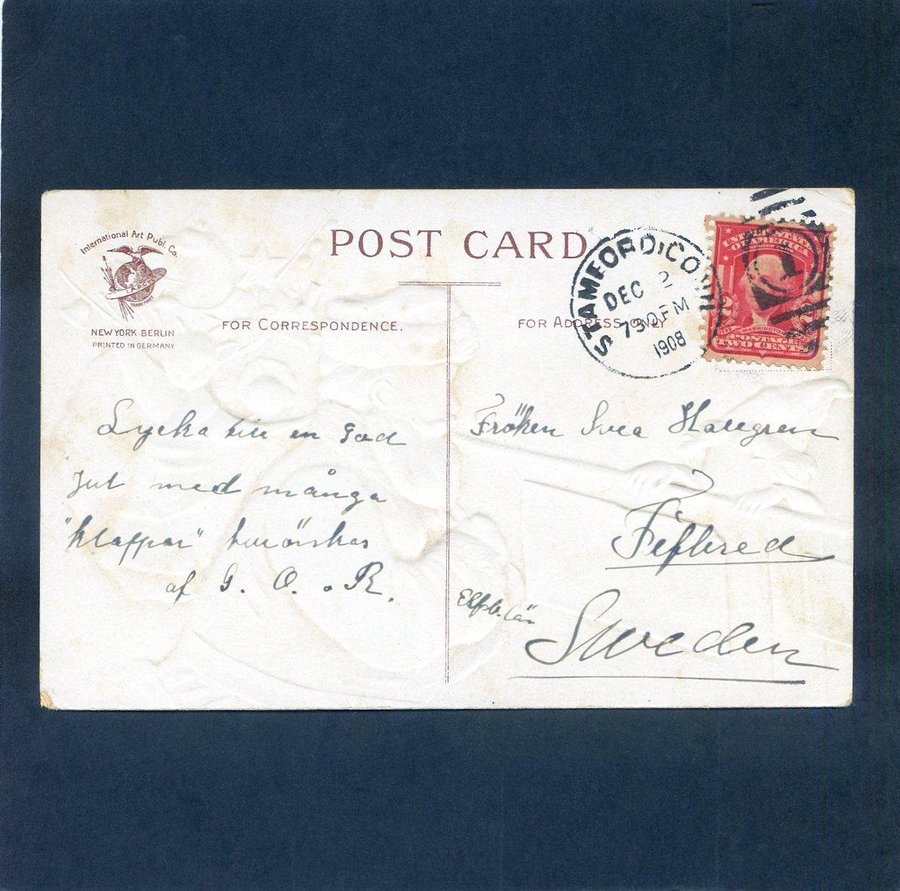 International Art Publ. Co.
NEW YORK BERLIN
PRINTED IN GERMANY
POST CARD
FOR CORRESPONDENCE.
FOR ADDRESS ONLY
STAMFORD, CO
DEC 2
730 PM
1908
UNITED STATES
OF AMERICA
WASHINGTON
POSTAGE
TWO CENTS
Lycka till en God
Jul med många
"klappar" tillönskas
af G. O. o R.
Fröken Svea Hallgren
Fiflered
Elfsb. län
Sweden